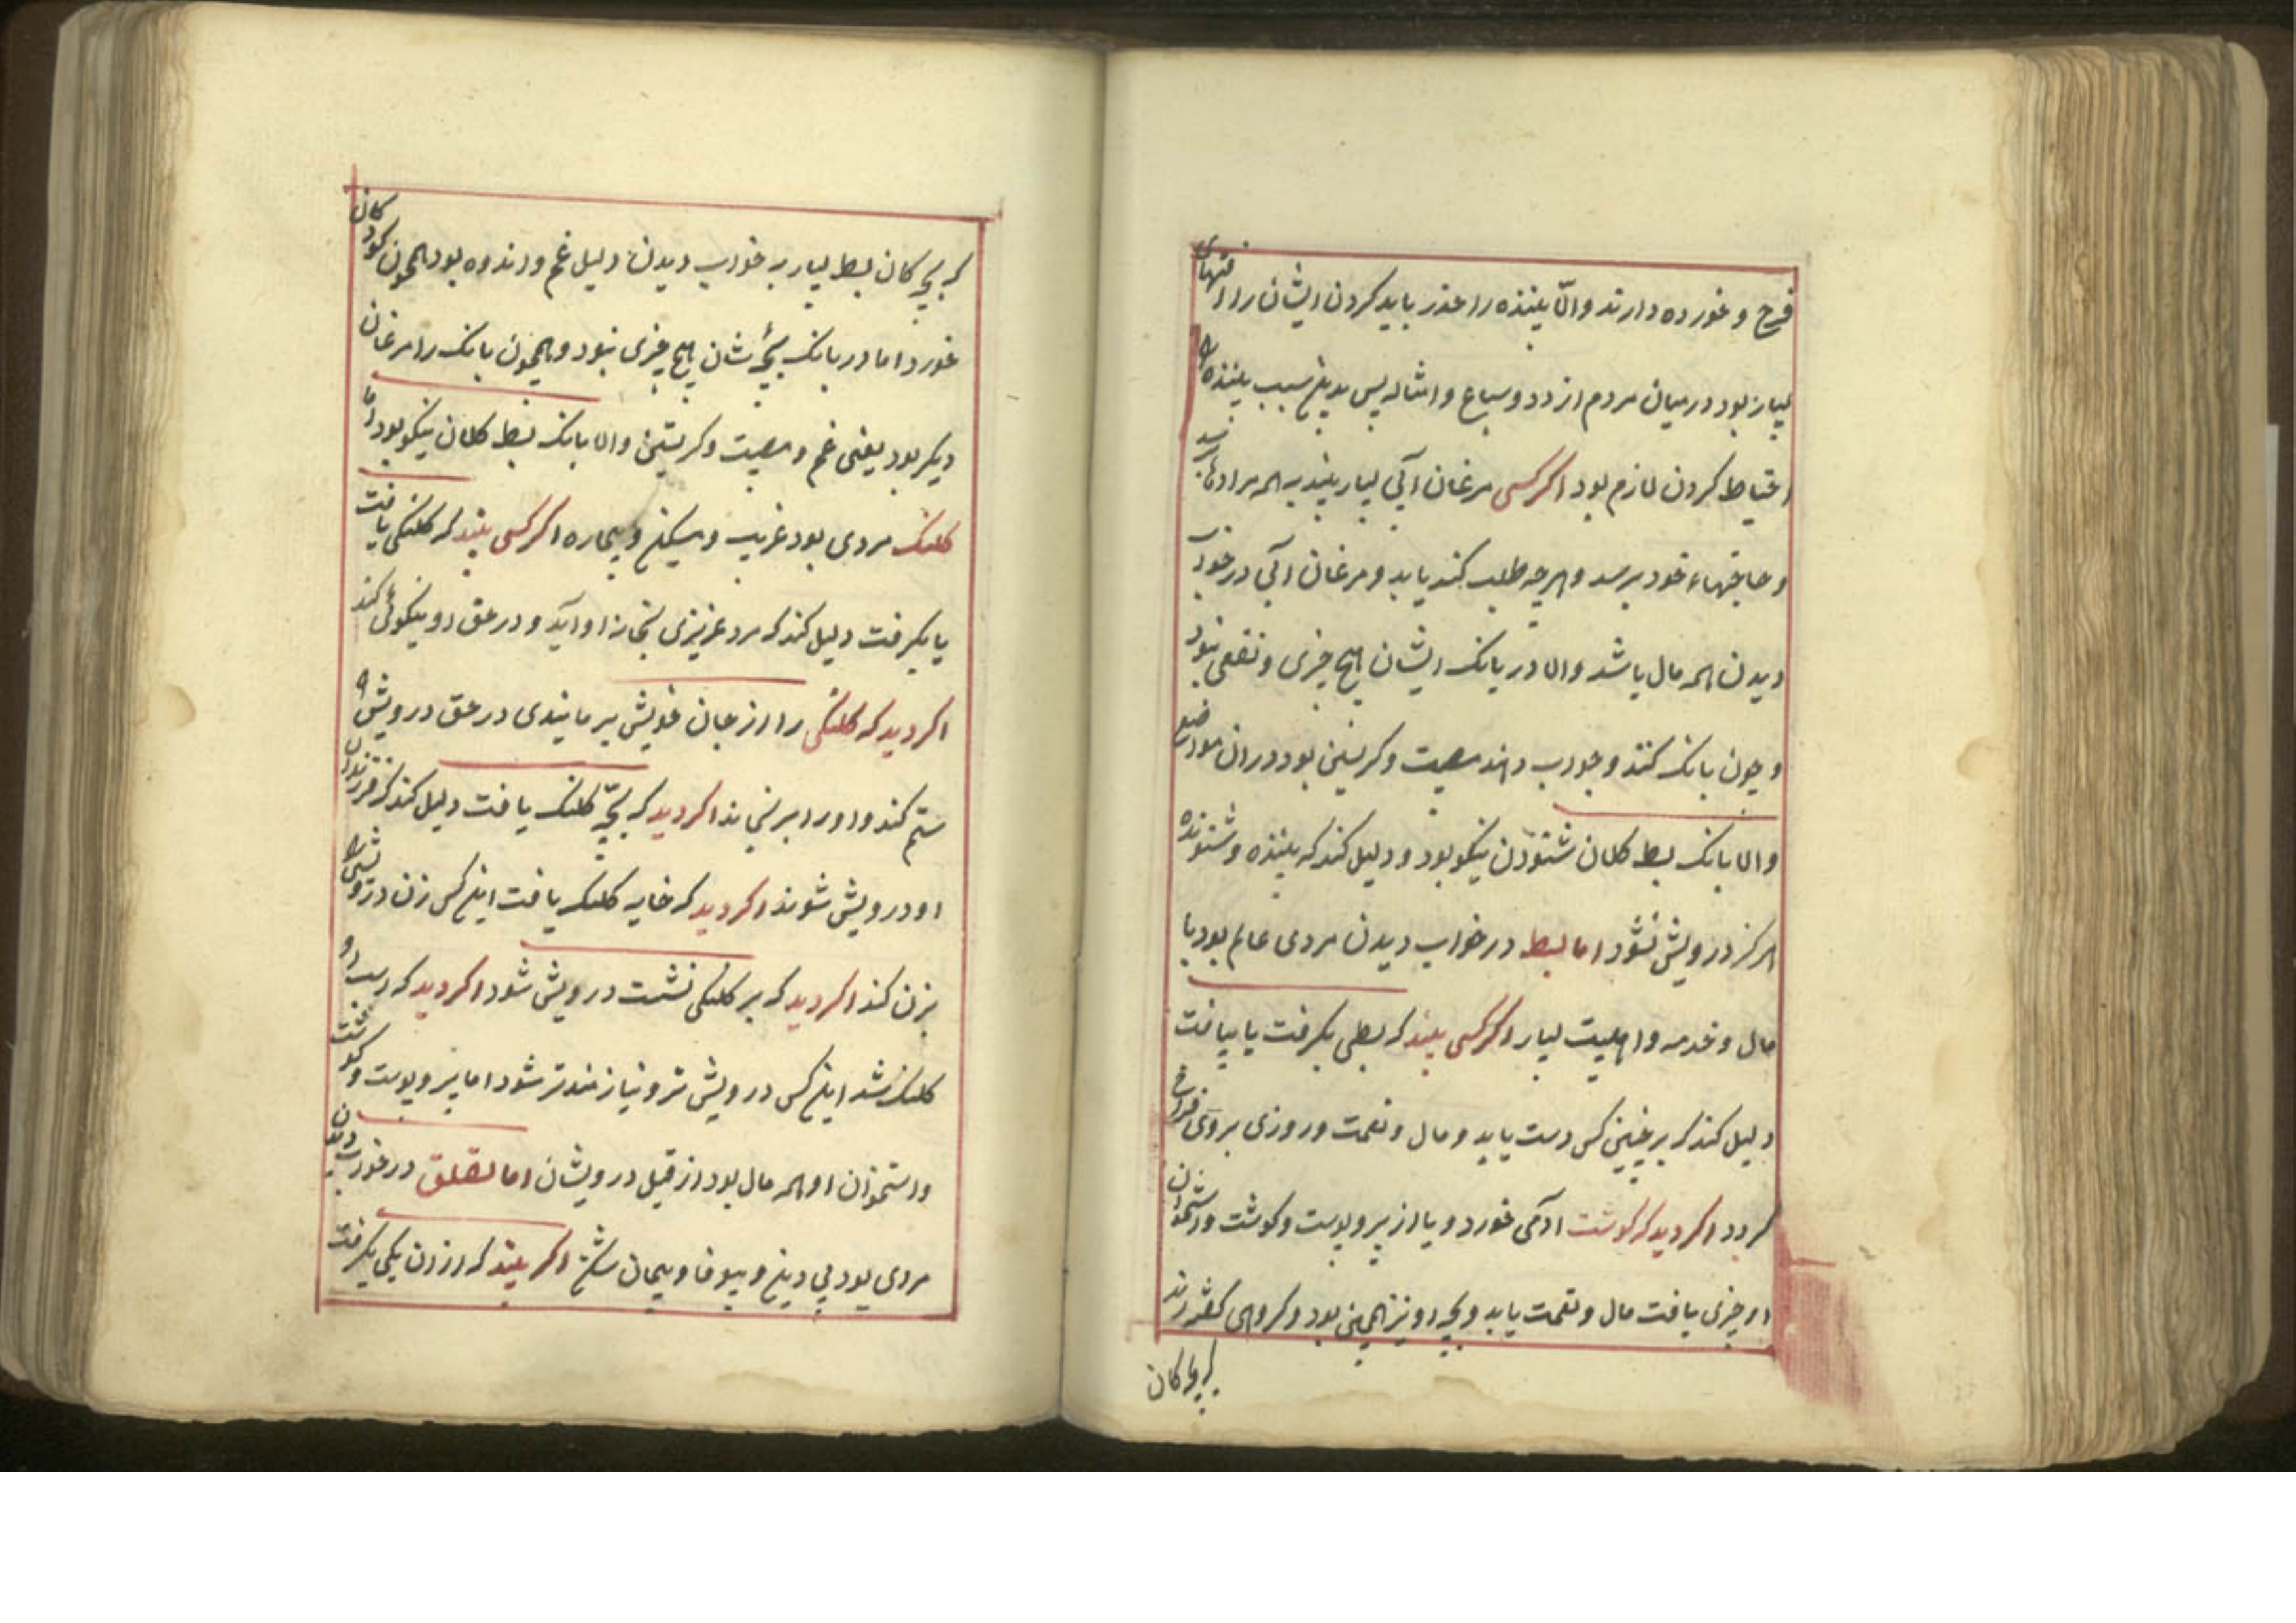 فرح و خورده دارند والّا بیننده را حذر باید کردن ایشان را آفتهای
بسیار بود در میان مردم از دد و سباع و امثاله پس بدین سبب بیننده را
احتیاط کردن لازم بود اگر کسی مرغان آبی بسیار بیند به همه مرادها برسد
و حاجتهاء خود برسد و هرچه طلب کند یابد و مرغان آبی در خواب
دیدن همه مال باشد و اما در بانک ایشان هیچ خیری و نفعی نبود
و چون بانک کنند و جواب دهند مصیبت و کریستن بود در آن مواضع
و اما بانک بط کلان شنودن نیکو بود و دلیل کند که بیننده و شنونده
هرکز درویش نشود اما بط در خواب دیدن مردی عالم بود با
مال و خدمه و اهلیت بسیار اکر کسی بیند که بطی بکرفت یا بیافت
دلیل کند که بر چنین کس دست یابد و مال و نعمت و روزی بر وی فراخ
کردد اکر دید که کوشت آدمی خورد و یا از پر و پوست و کوشت و استخوان
او چیزی یافت مال و نعمت یابد و بچه او نیز همین بود و کروهی کفته‌اند
که بچه کان
که بچه کان بط بسیار به خواب دیدن دلیل غم و اندوه بود همچون کودکان
خورد اما در بانک بچهٔ شان هیچ خیری نبود و همچون بانک را مرغان
دیکر بود یعنی غم و مصیبت و کریستن و اما بانک بط کلان نیکو بود اما
کلنک مردی بود غریب و مسکین و بیچاره اکر کسی بیند که کلنکی یافت
یا بکرفت دلیل کند که مرد عزیزی بخانه او آید و در حق او نیکوئی کند
اکر دید که کلنکی را از جان خویش برمانیدی در حق درویشی
ستم کند و او را برنجاند اکر دید که بچّه کلنک یافت دلیل کند که فرزندان
او درویش شوند اکر دید که خایه کلنک یافت این کس زن درویشی را
بزن کند اکر دید که بر کلنکی نشست درویش شود اکر دید که اسب او
کلنک شد این کس درویش‌تر و نیازمندتر شود اما پر و پوست و کوشت
و استخوان او همه مال بود از قبل درویشان اما لقلق در خواب دیدن
مردی بود بی دین و بیوفا و پیمان شکن اکر بیند که از آن یکی بکرفت